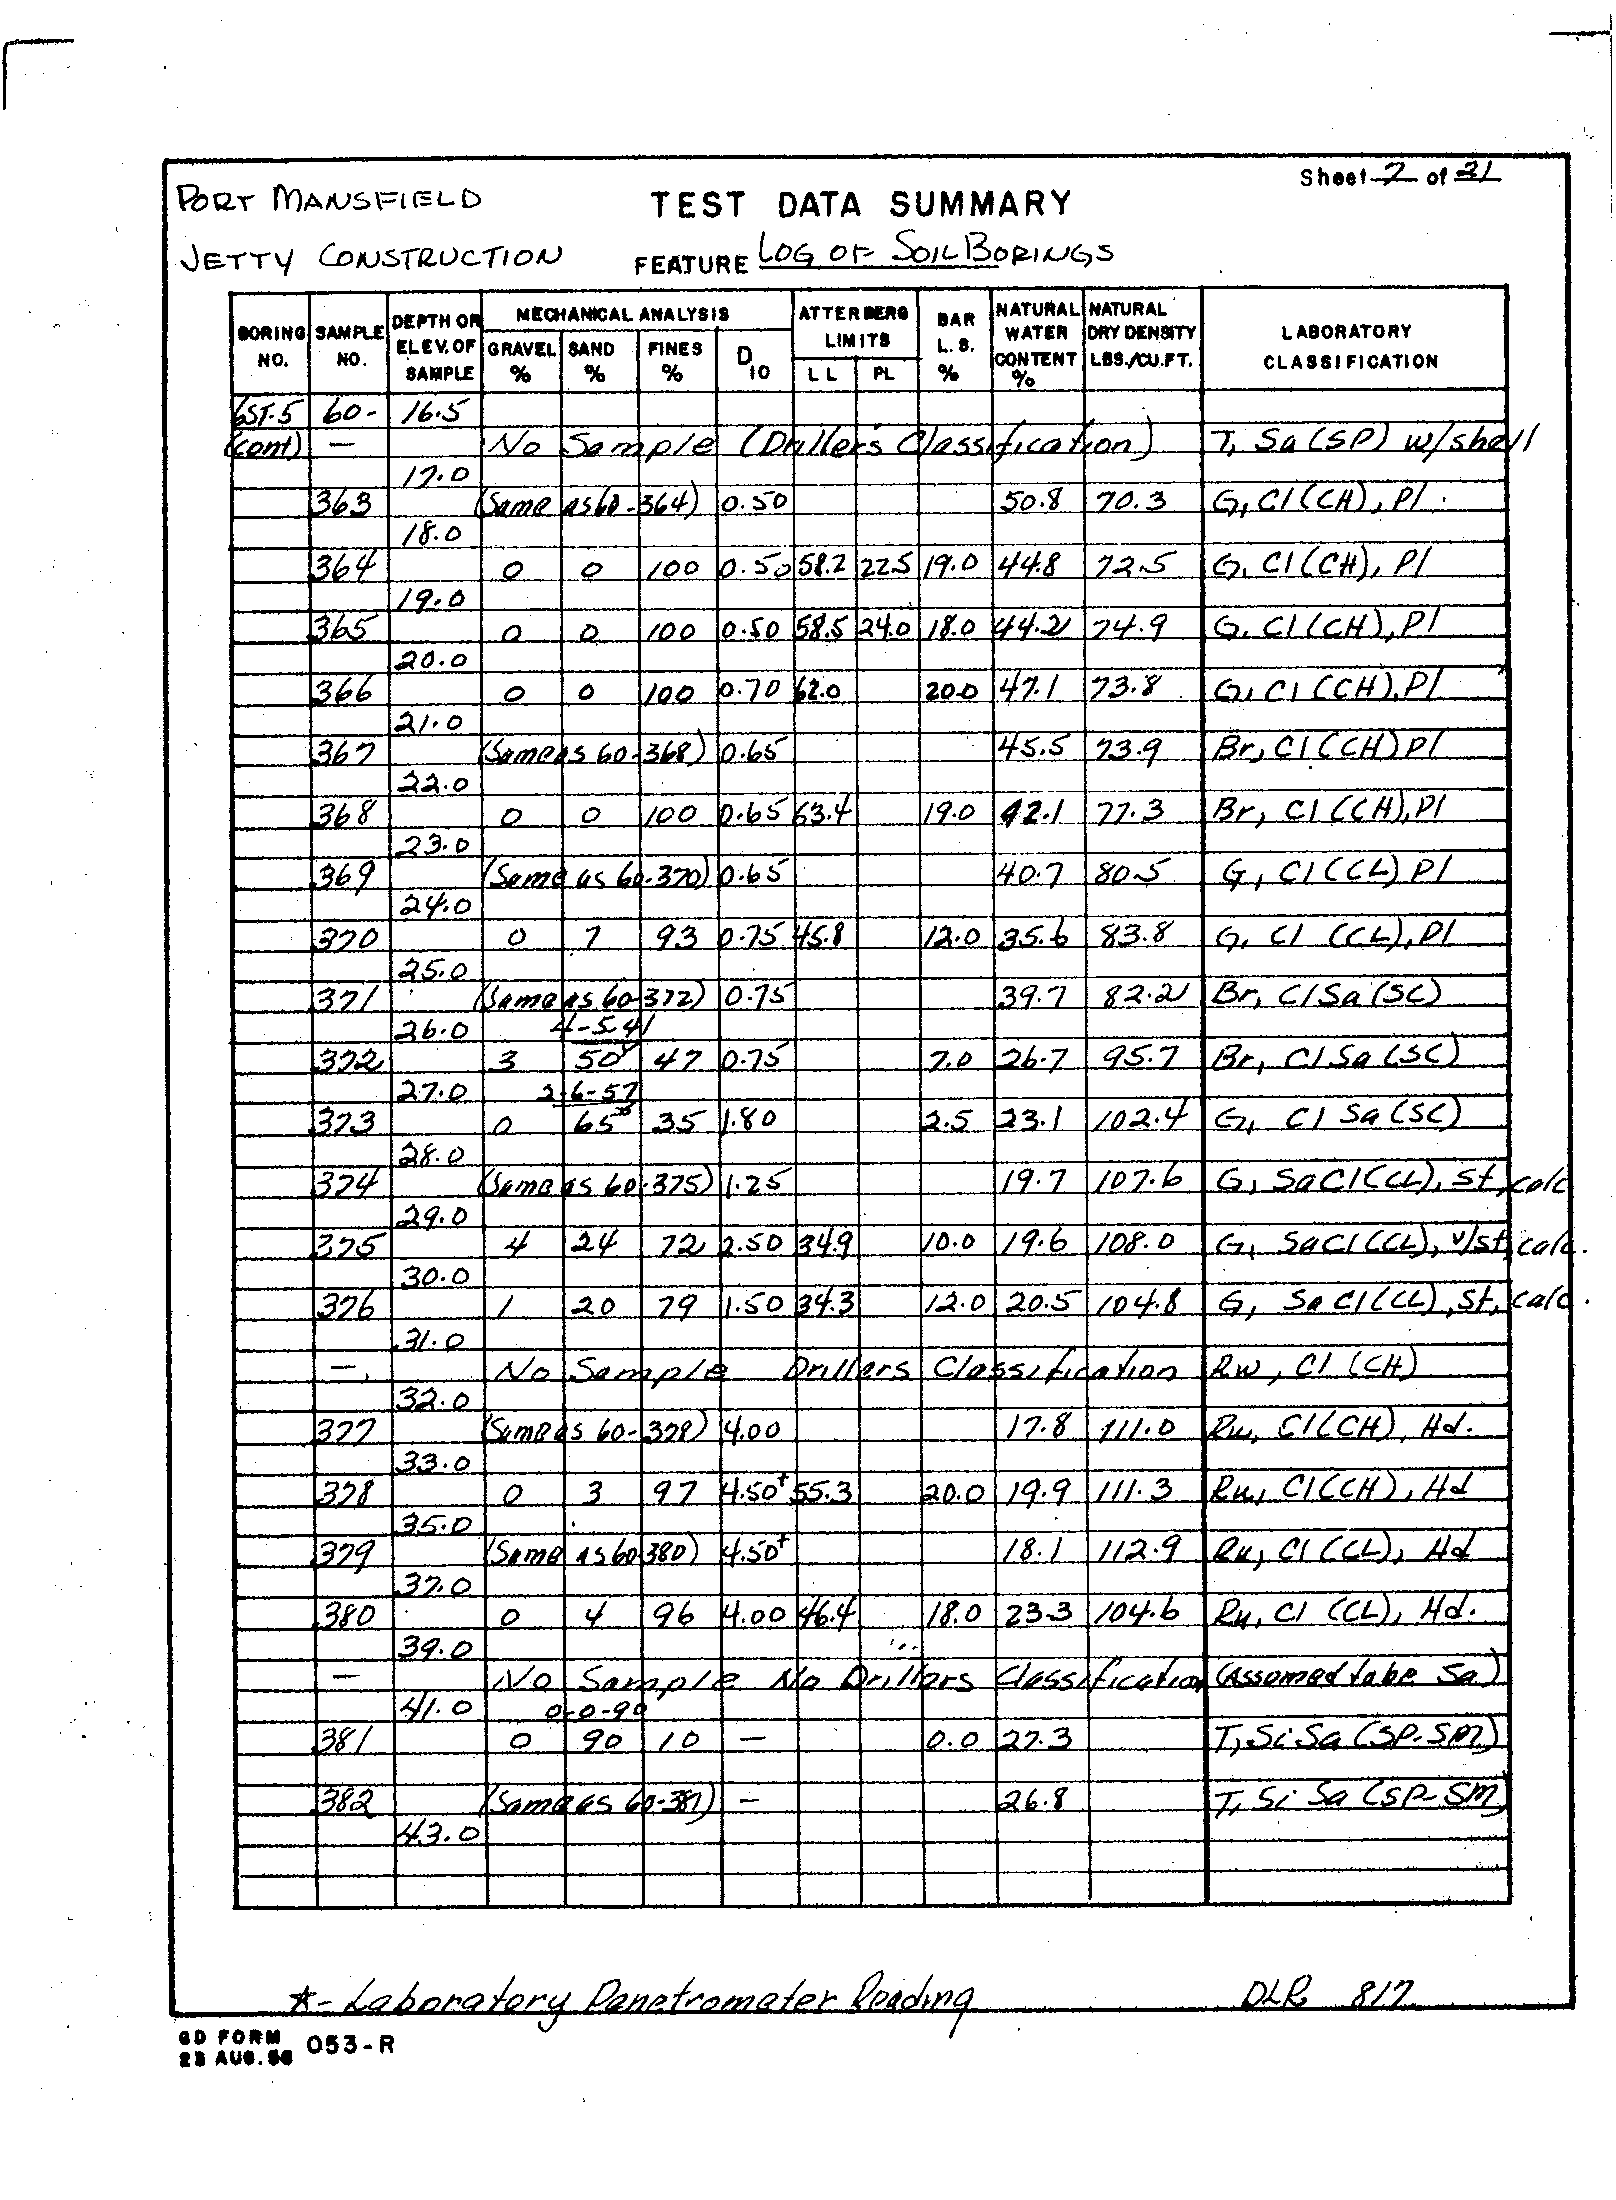 Sheet 7 of 31
PORT MANSFIELD
TEST DATA SUMMARY
JETTY CONSTRUCTION FEATURE LOG OF SOIL BORINGS
BORING NO. SAMPLE NO. DEPTH OR ELEV. OF SAMPLE MECHANICAL ANALYSIS GRAVEL % SAND % FINES % D10 ATTERBERG LIMITS LL PL BAR L.S. % NATURAL WATER CONTENT % NATURAL DRY DENSITY LBS./CU.FT. LABORATORY CLASSIFICATION
6ST-5 60- 16.5
(cont) — No Sample (Drillers Classification) T, Sa (SP) w/shell
17.0
363 (Same as 60-364) 0.50 50.8 70.3 G, Cl (CH), Pl.
18.0
364 0 0 100 0.50 58.2 22.5 19.0 44.8 72.5 G, Cl (CH), Pl
19.0
365 0 0 100 0.50 58.5 24.0 18.0 44.2 74.9 G, Cl (CH), Pl
20.0
366 0 0 100 0.70 62.0 20.0 47.1 73.8 G, Cl (CH), Pl
21.0
367 (Same as 60-368) 0.65 45.5 73.9 Br, Cl (CH) Pl
22.0
368 0 0 100 0.65 63.4 19.0 42.1 77.3 Br, Cl (CH), Pl
23.0
369 (Same as 60-370) 0.65 40.7 80.5 G, Cl (CL) Pl
24.0
370 0 7 93 0.75 45.8 12.0 35.6 83.8 G, Cl (CL), Pl
25.0
371 (Same as 60-372) 0.75 39.7 82.2 Br, Cl Sa (SC)
26.0 4-5-41
372 3 50 47 0.75 7.0 26.7 95.7 Br, Cl Sa (SC)
27.0 2-6-57
373 0 65 35 1.80 2.5 23.1 102.4 G, Cl Sa (SC)
28.0
374 (Same as 60-375) 1.25 19.7 107.6 G, Sa Cl (CL), St, calc
29.0
375 4 24 72 2.50 34.9 10.0 19.6 108.0 G, Sa Cl (CL), v/st, calc.
30.0
376 1 20 79 1.50 34.3 12.0 20.5 104.8 G, Sa Cl (CL), St, calc.
31.0
— No Sample Drillers Classification Rw, Cl (CH)
32.0
377 (Same as 60-378) 4.00 17.8 111.0 Rw, Cl (CH), Hd.
33.0
378 0 3 97 4.50+ 55.3 20.0 19.9 111.3 Rw, Cl (CH), Hd
35.0
379 (Same as 60-380) 4.50+ 18.1 112.9 Rw, Cl (CL), Hd
37.0
380 0 4 96 4.00 46.4 18.0 23.3 104.6 Rw, Cl (CL), Hd.
39.0
— No Sample No Drillers Classification (Assumed to be Sa)
41.0 0-0-90
381 0 90 10 — 0.0 27.3 T, Si Sa (SP-SM)
382 (Same as 60-381) — 26.8 T, Si Sa (SP-SM)
43.0
*- Laboratory Penetrometer Reading DLR 817
GD FORM 053-R
23 AUG. 56